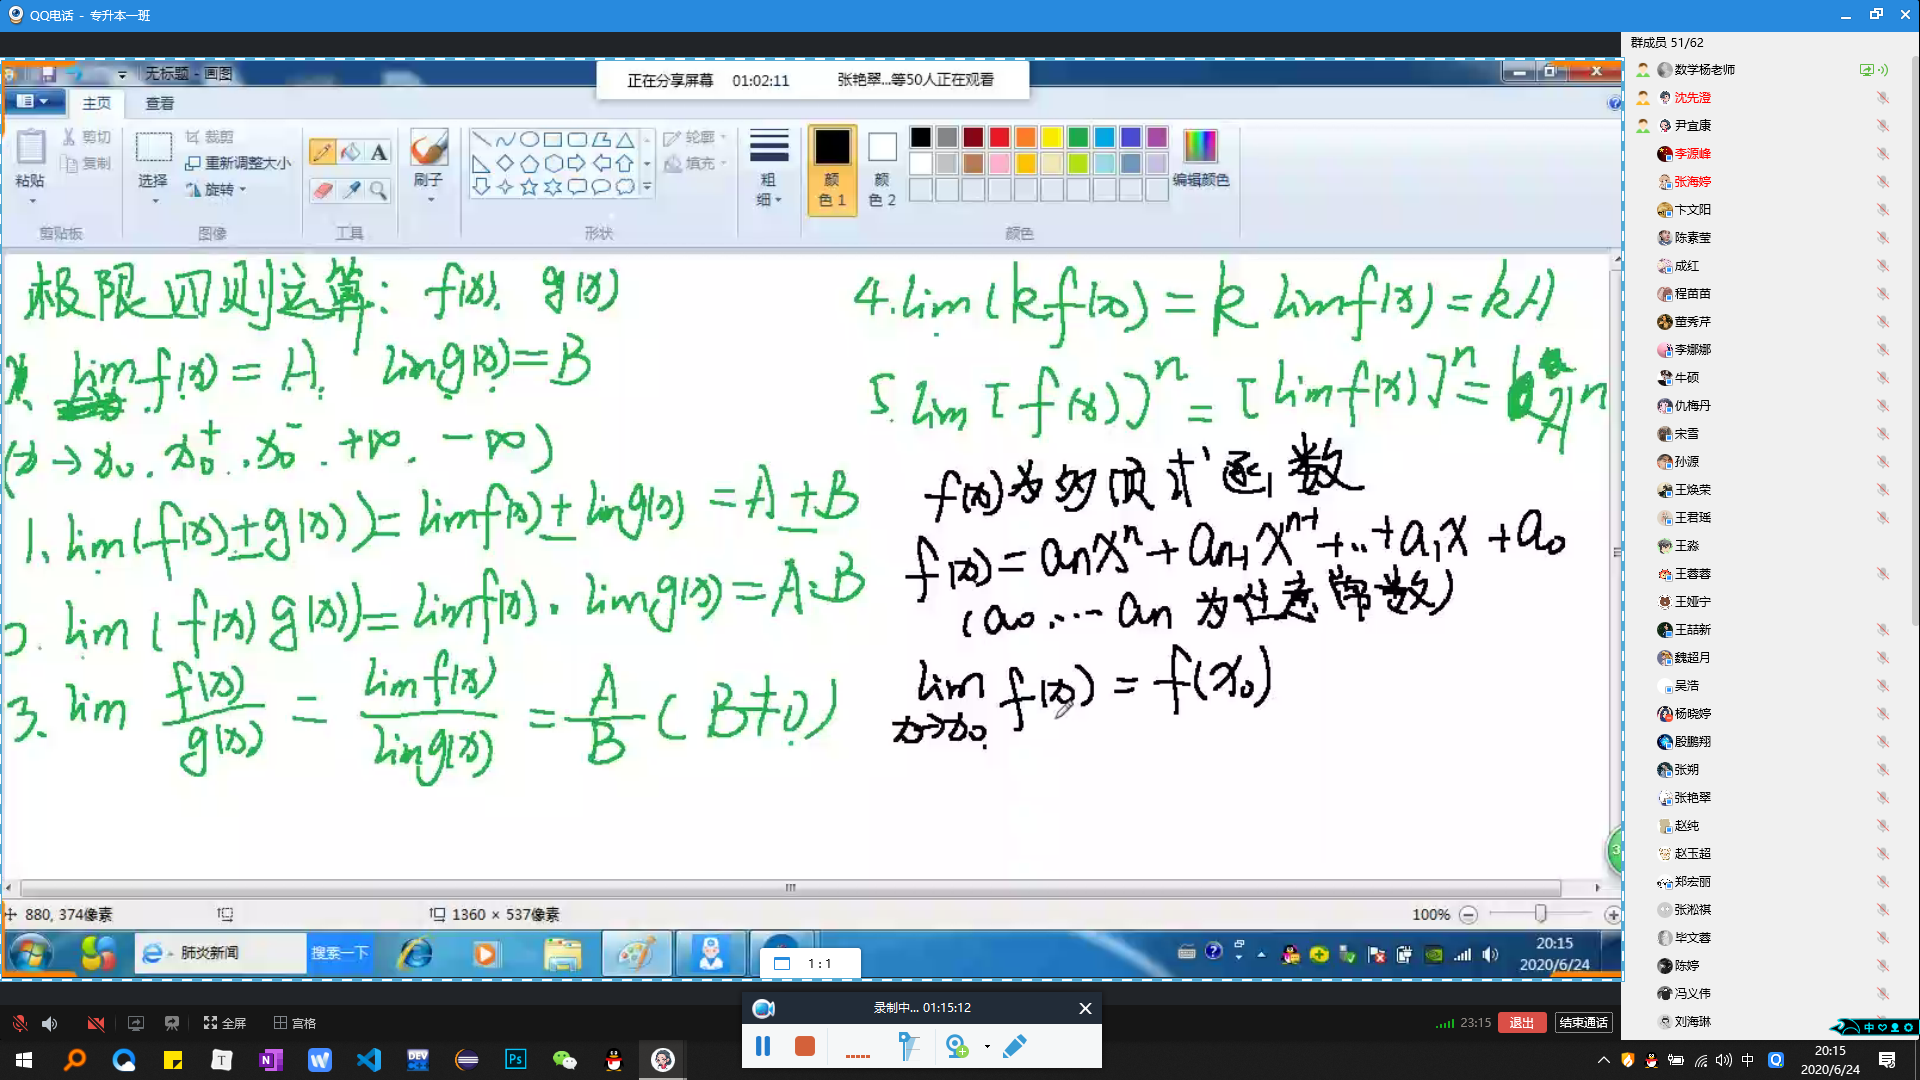 QQ电话 - 专升本一班
群成员 51/62
无标题 - 画图
正在分享屏幕 01:02:11 张艳翠...等50人正在观看
主页 查看
粘贴
剪切
复制
剪贴板
选择
裁剪
重新调整大小
旋转
图像
A
工具
刷子
形状
轮廓
填充
粗细
颜色 1
颜色 2
编辑颜色
颜色
极限四则运算: f(x). g(x)
lim f(x) = A. lim g(x) = B
(x→x₀. x₀⁺. x₀⁻. +∞. -∞)
1. lim(f(x)±g(x)) = limf(x) ± limg(x) = A±B
2. lim(f(x)g(x)) = limf(x) · limg(x) = A·B
3. lim f(x)/g(x) = limf(x)/limg(x) = A/B (B≠0)
4. lim(k f(x)) = k limf(x) = kA
5. lim[f(x)]ⁿ = [limf(x)]ⁿ = Aⁿ
f(x)为多项式函数
f(x) = aₙxⁿ + aₙ₋₁xⁿ⁻¹ + ‥ + a₁x + a₀
(a₀ … aₙ 为任意常数)
lim x→x₀ f(x) = f(x₀)
880, 374像素
1360 × 537像素
100%
肺炎新闻
搜索一下
1 : 1
20:15
2020/6/24
数学杨老师
沈先澄
尹宜康
李源峰
张海婷
卞文阳
陈素莹
成红
程苗苗
董秀芹
李娜娜
牛硕
仇梅丹
宋雪
孙源
王焕荣
王君瑶
王淼
王蓉蓉
王娅宁
王喆新
魏超月
吴浩
杨晓婷
殷鹏翔
张朔
张艳翠
赵纯
赵玉超
郑宏丽
张淞祺
毕文蓉
陈婷
冯义伟
刘海琳
录制中... 01:15:12
全屏
宫格
23:15
退出
结束通话
中
T
N
W
DEV
Ps
中
20:15
2020/6/24